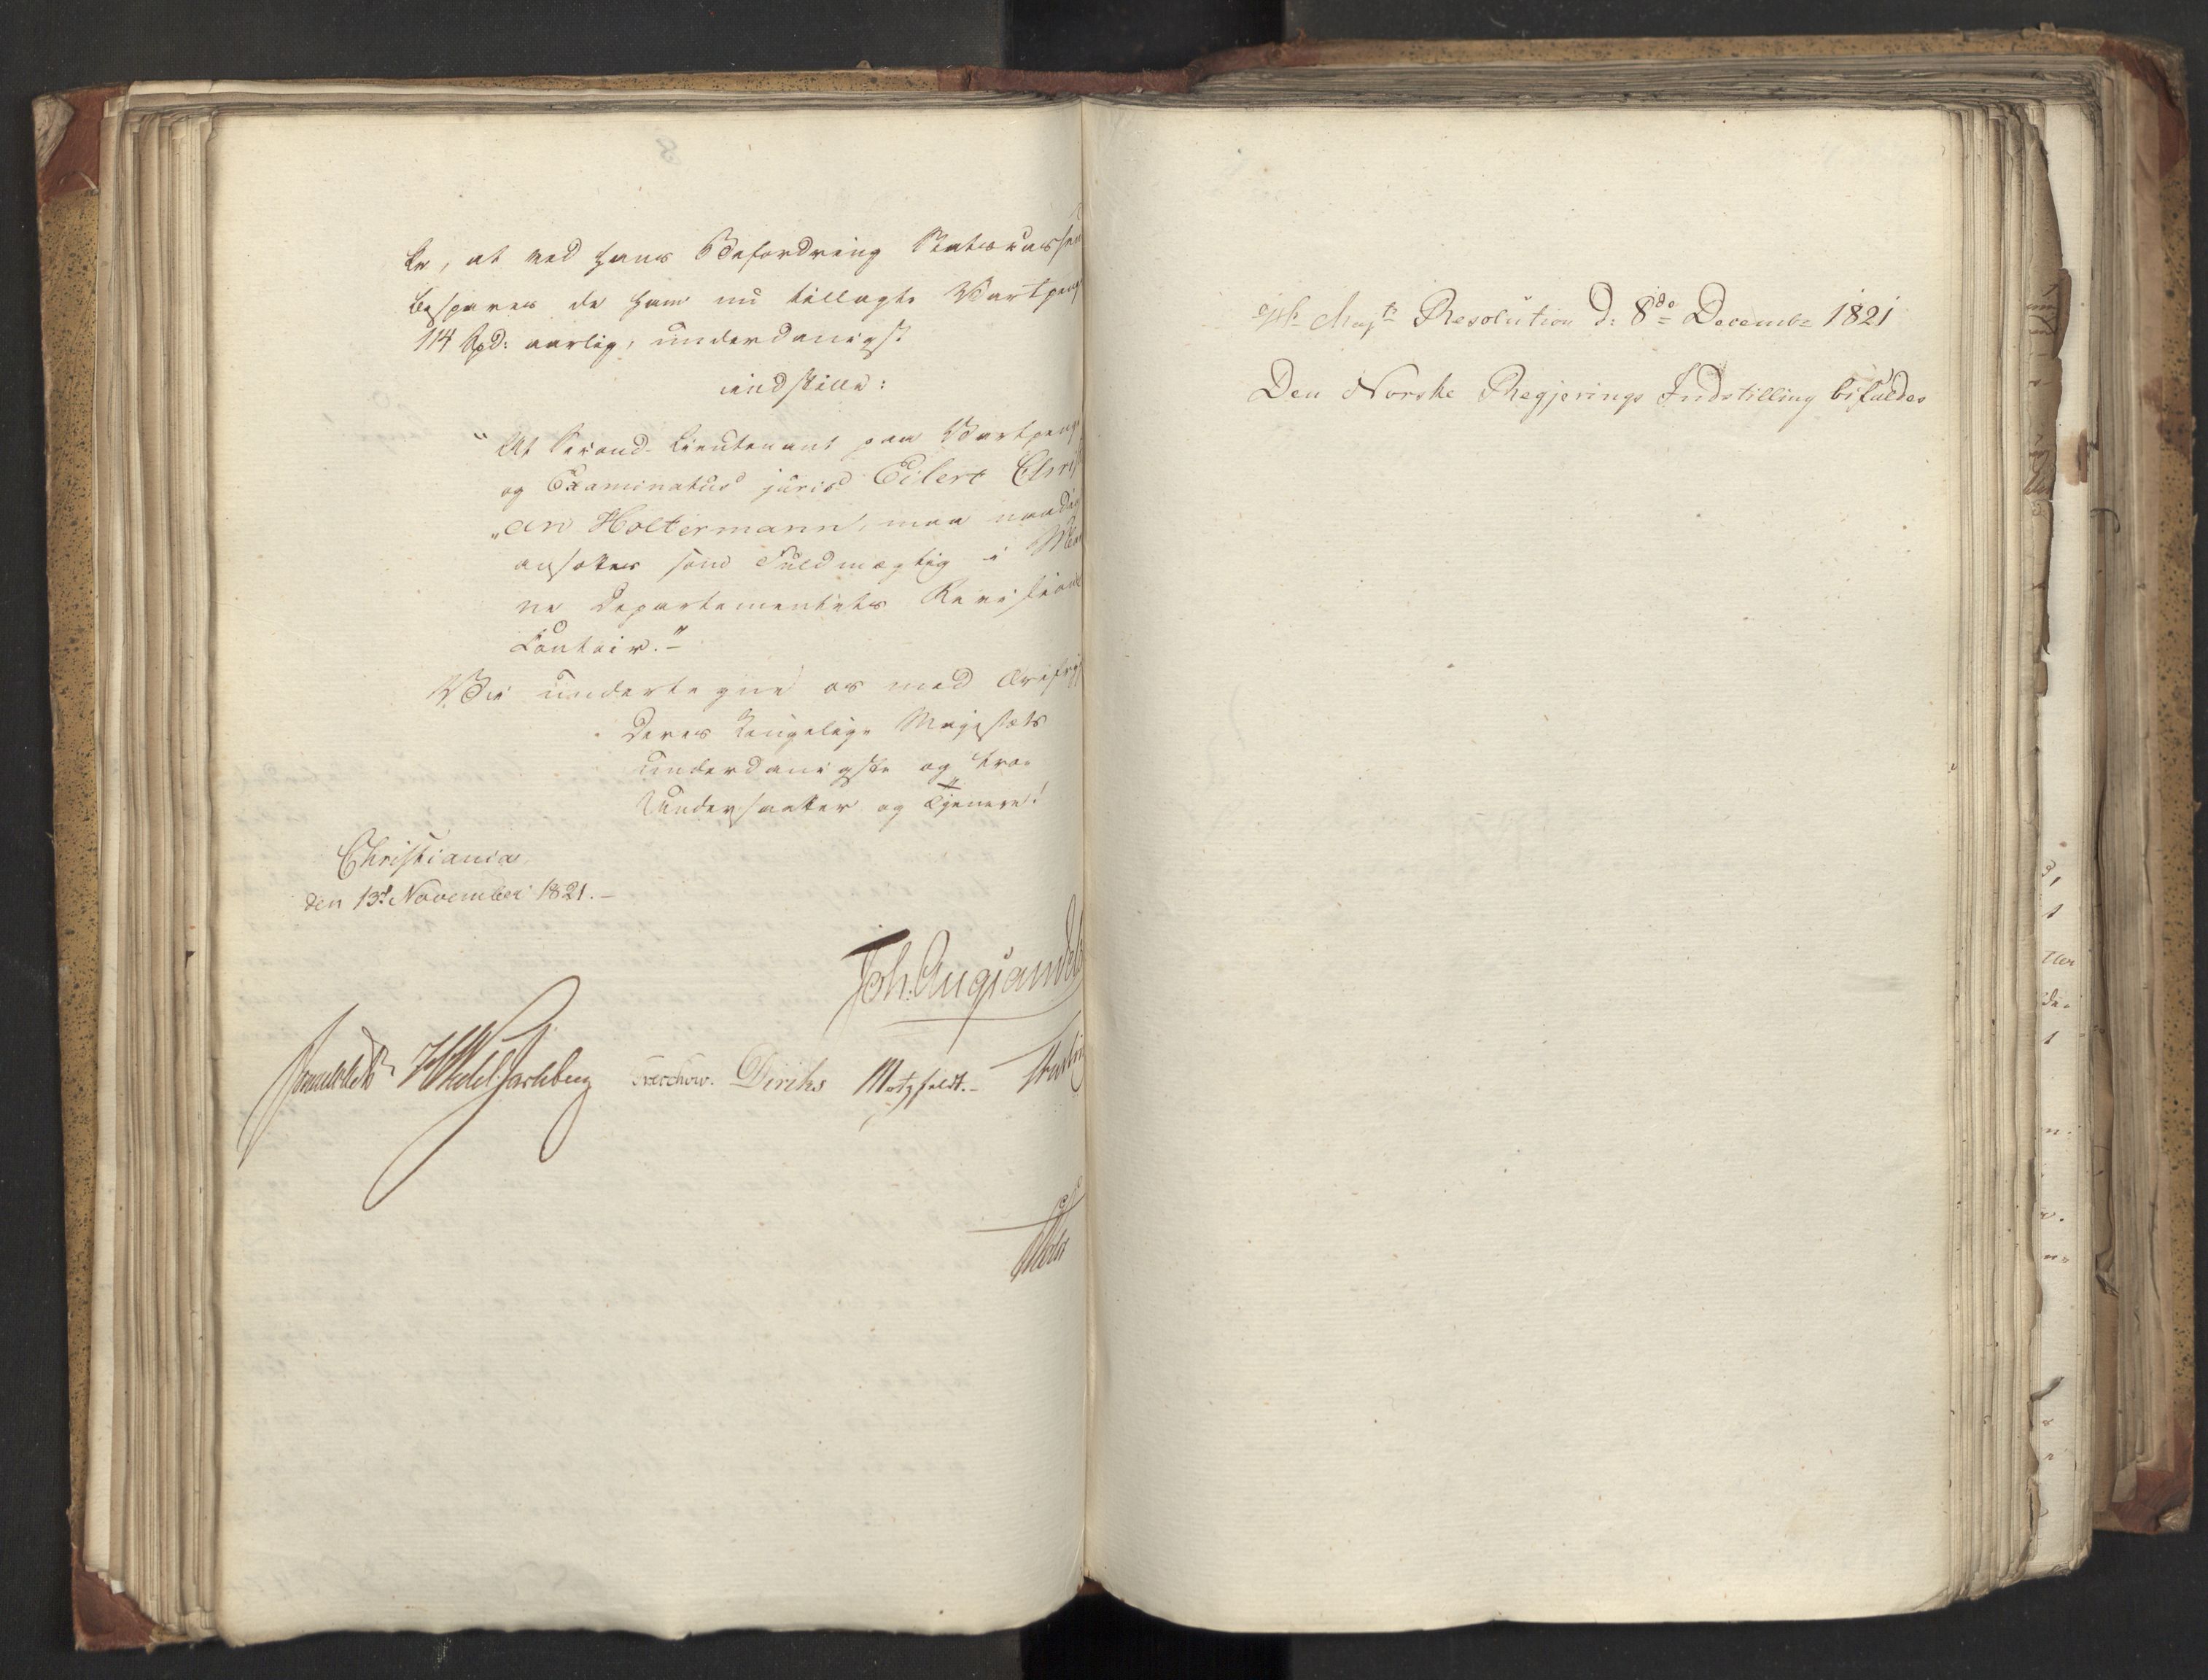 le, at ved hans Befordring Statscassen
bespares de ham nu tillagte Vartpenge
114 Spd: aarlig, underdanigst
indstille:
"At Second-Lieutenant paa Vartpenge
og Examinatus juris Eilert Christi
"an Holtermann, maa naadigst
ansættes som Fuldmægtig i
ne Departementets Revisions
Contoir."-
Vi undertegne os med Ærefrygt
Deres Kongelige Majestæts
underdanigste og troe
Undersaatter og Tjenere!
Christiania
den 13d November 1821.-
Joh. Aug: Sandels
Sommerhielm HWedel Jarlsberg Treschow. Diriks Motzfeldt.-
Hs Majts Resolution d: 8de Decembr 1821
Den Norske Regjerings Indstilling bifaldes